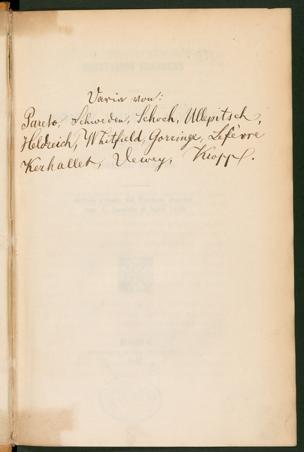 Varia von:
Pareto, Schweden, Schoch, Ullepitsch,
Heldreich, Whitfield, Gorringe, Lefèvre
Kerhallet, Dewey, Kropp.